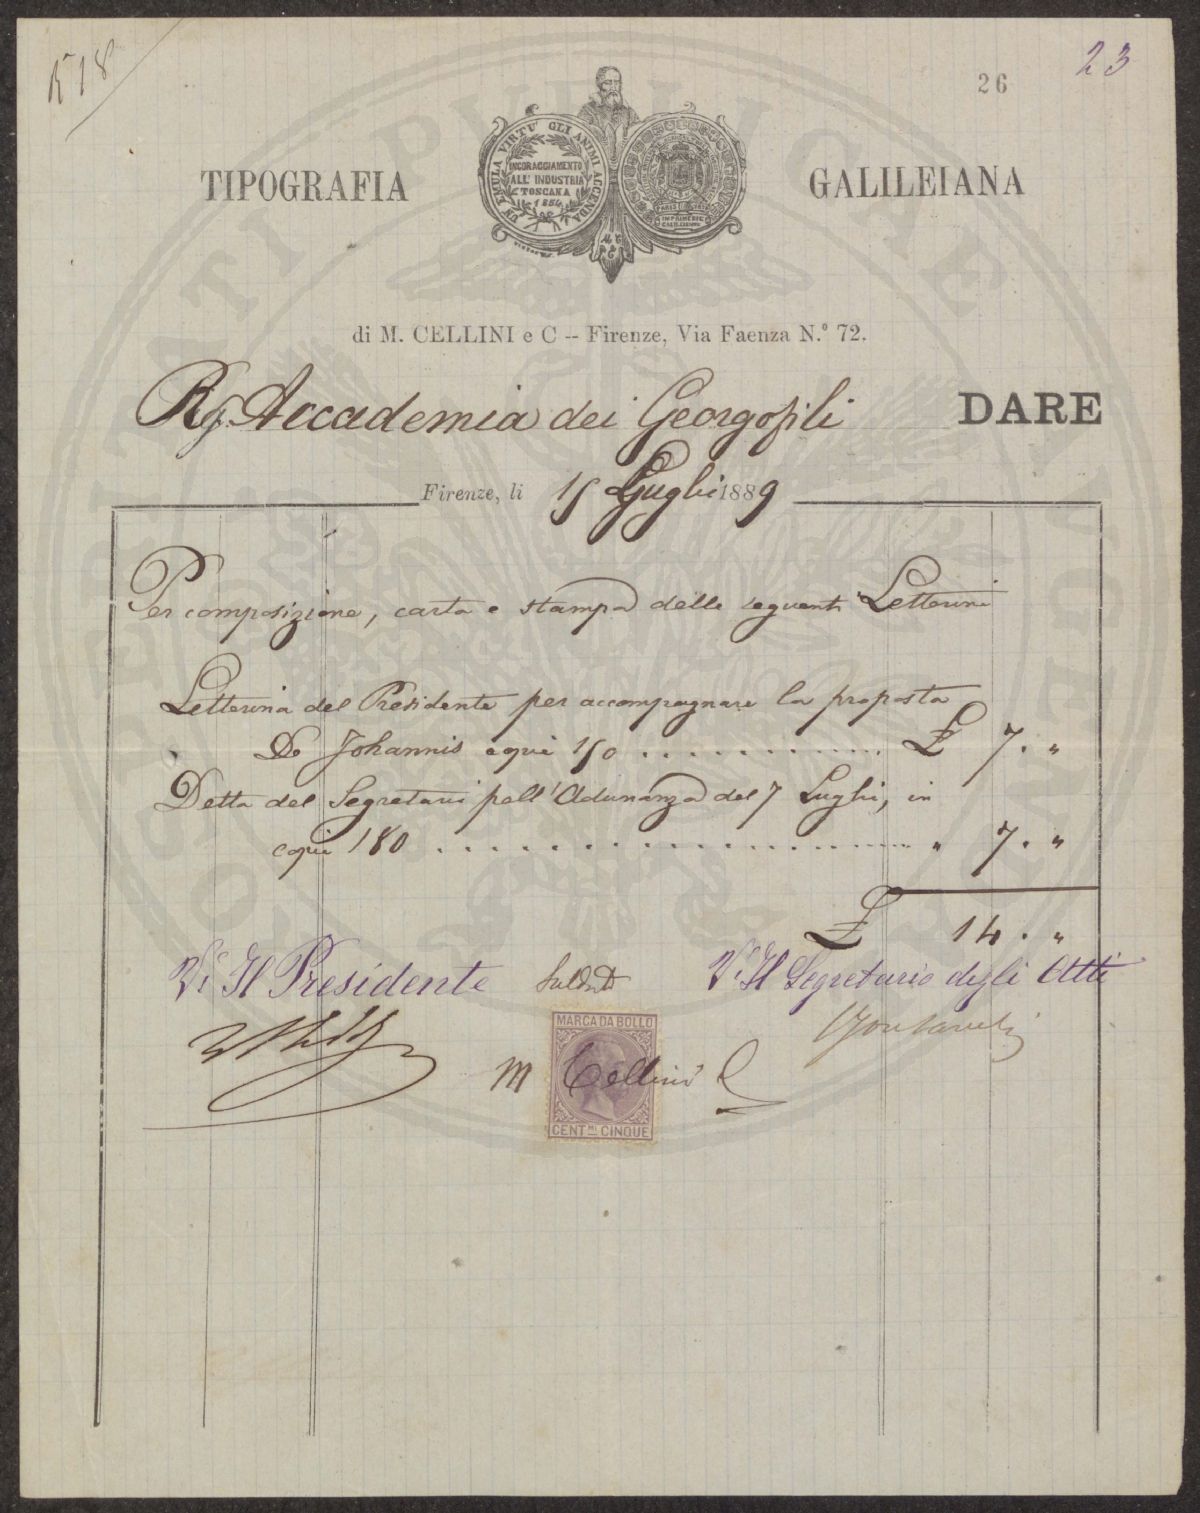 23
26
UN EMULA VIRTU' GLI ANIMI ACCENDA
INCORAGGIAMENTO
ALL' INDUSTRIA
TOSCANA
1854
TIPOGRAFIA GALILEIANA
di M. CELLINI e C -- Firenze, Via Faenza N.º 72.
Rg. Accademia dei Georgofili DARE
Firenze, li 15 Luglio 1889
Per composizione, carta e stampa delle seguenti Letterine
Letterina del Presidente per accompagnare la proposta
De Johannis copie 150 .............. £ 7. "
Detta del Segretario pell'Adunanza del 7 Luglio, in
copie 180 .......................... " 7. "
£ 14. "
Vº Il Presidente Saldato Vº Il Segretario degli Atti
MARCA DA BOLLO
M Cellini
CENT.MI CINQUE